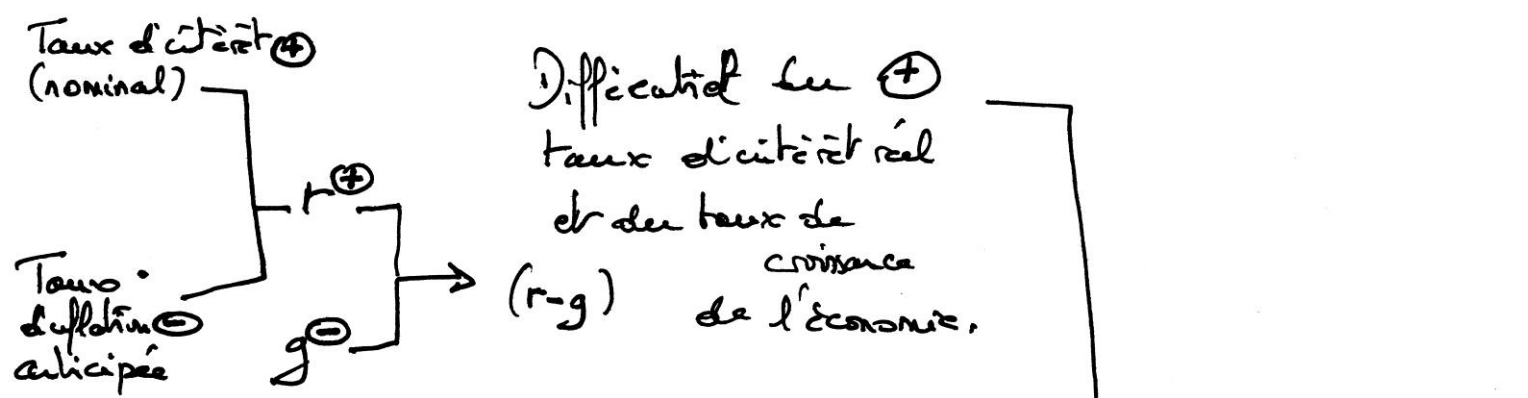 Taux d'intérêt ⊕
(nominal)
r ⊕
Taux
d'inflation ⊖
anticipée
g ⊖
Différentiel du ⊕
taux d'intérêt réel
et du taux de
croissance
(r-g) de l'économie.